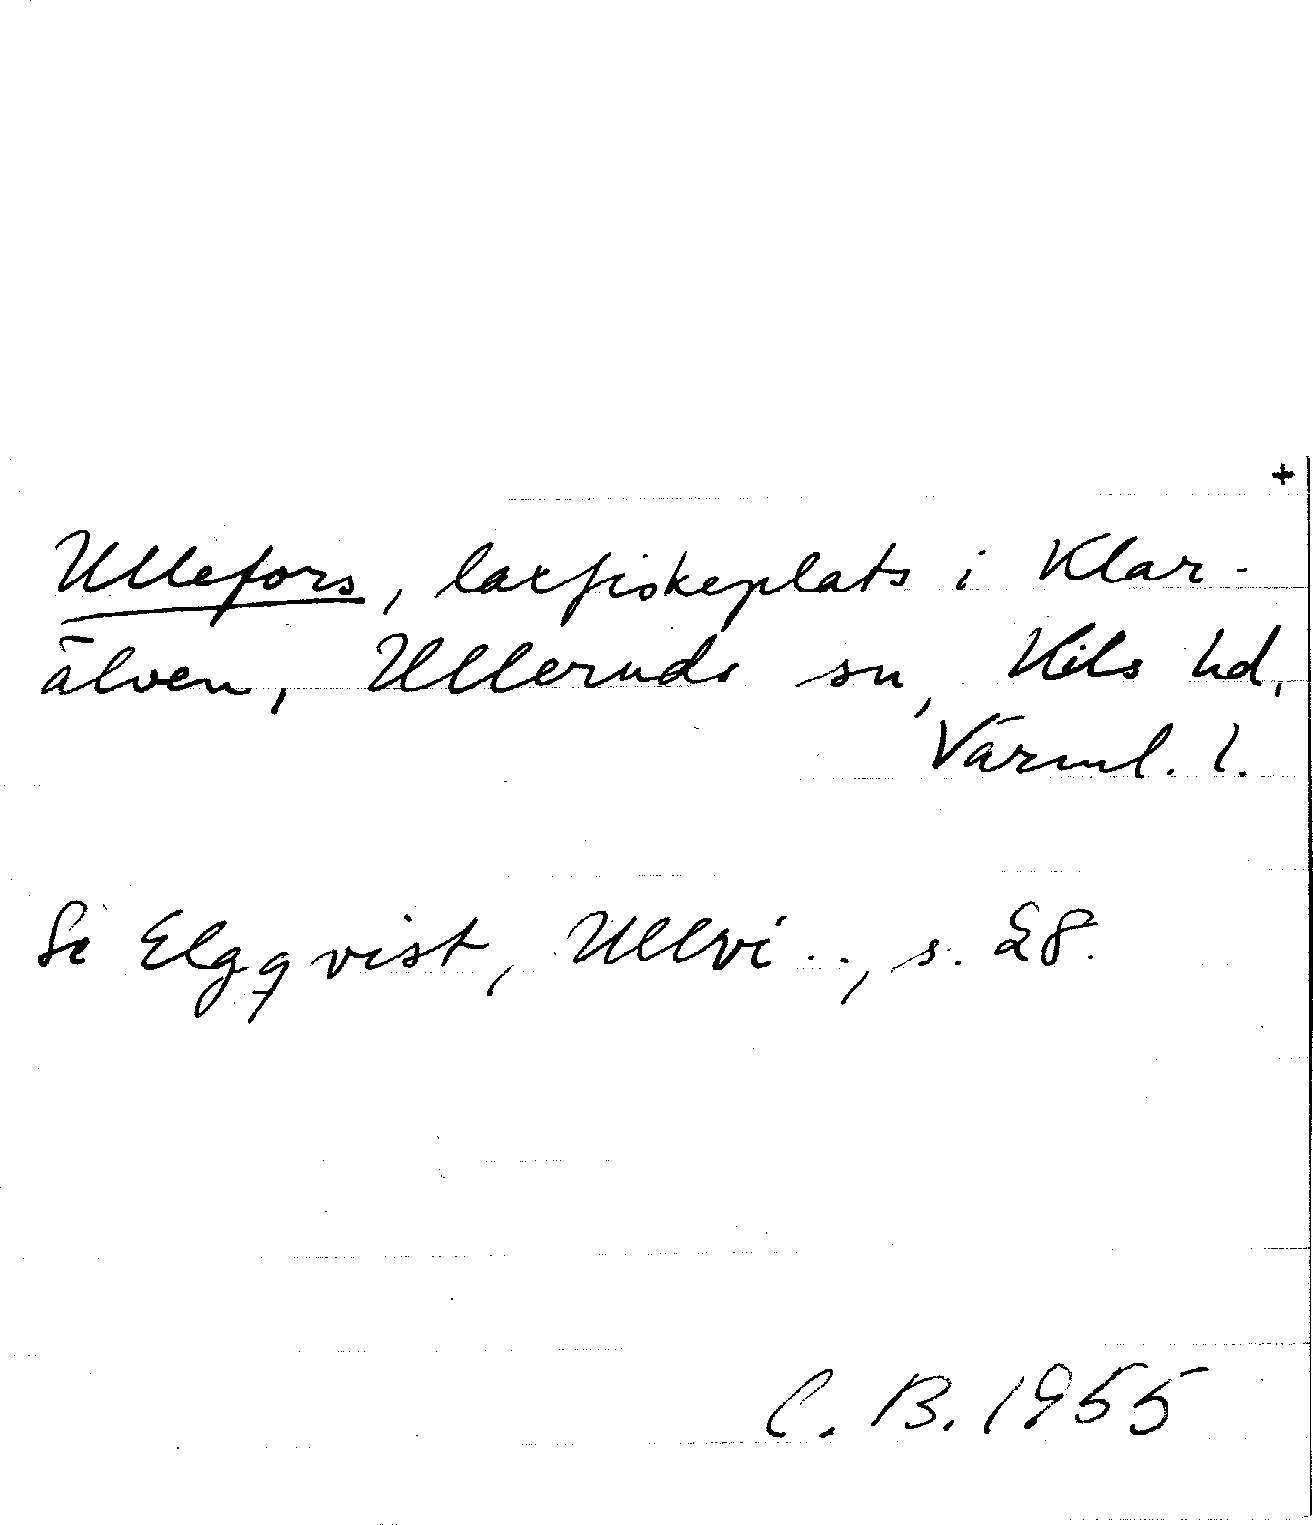 +
Ullefors, laxfiskeplats i Klar-
älven, Ulleruds sn, Kils hd,
Värml. l.
Se Elgqvist, Ullvi .., s. 28.
C. B. 1955